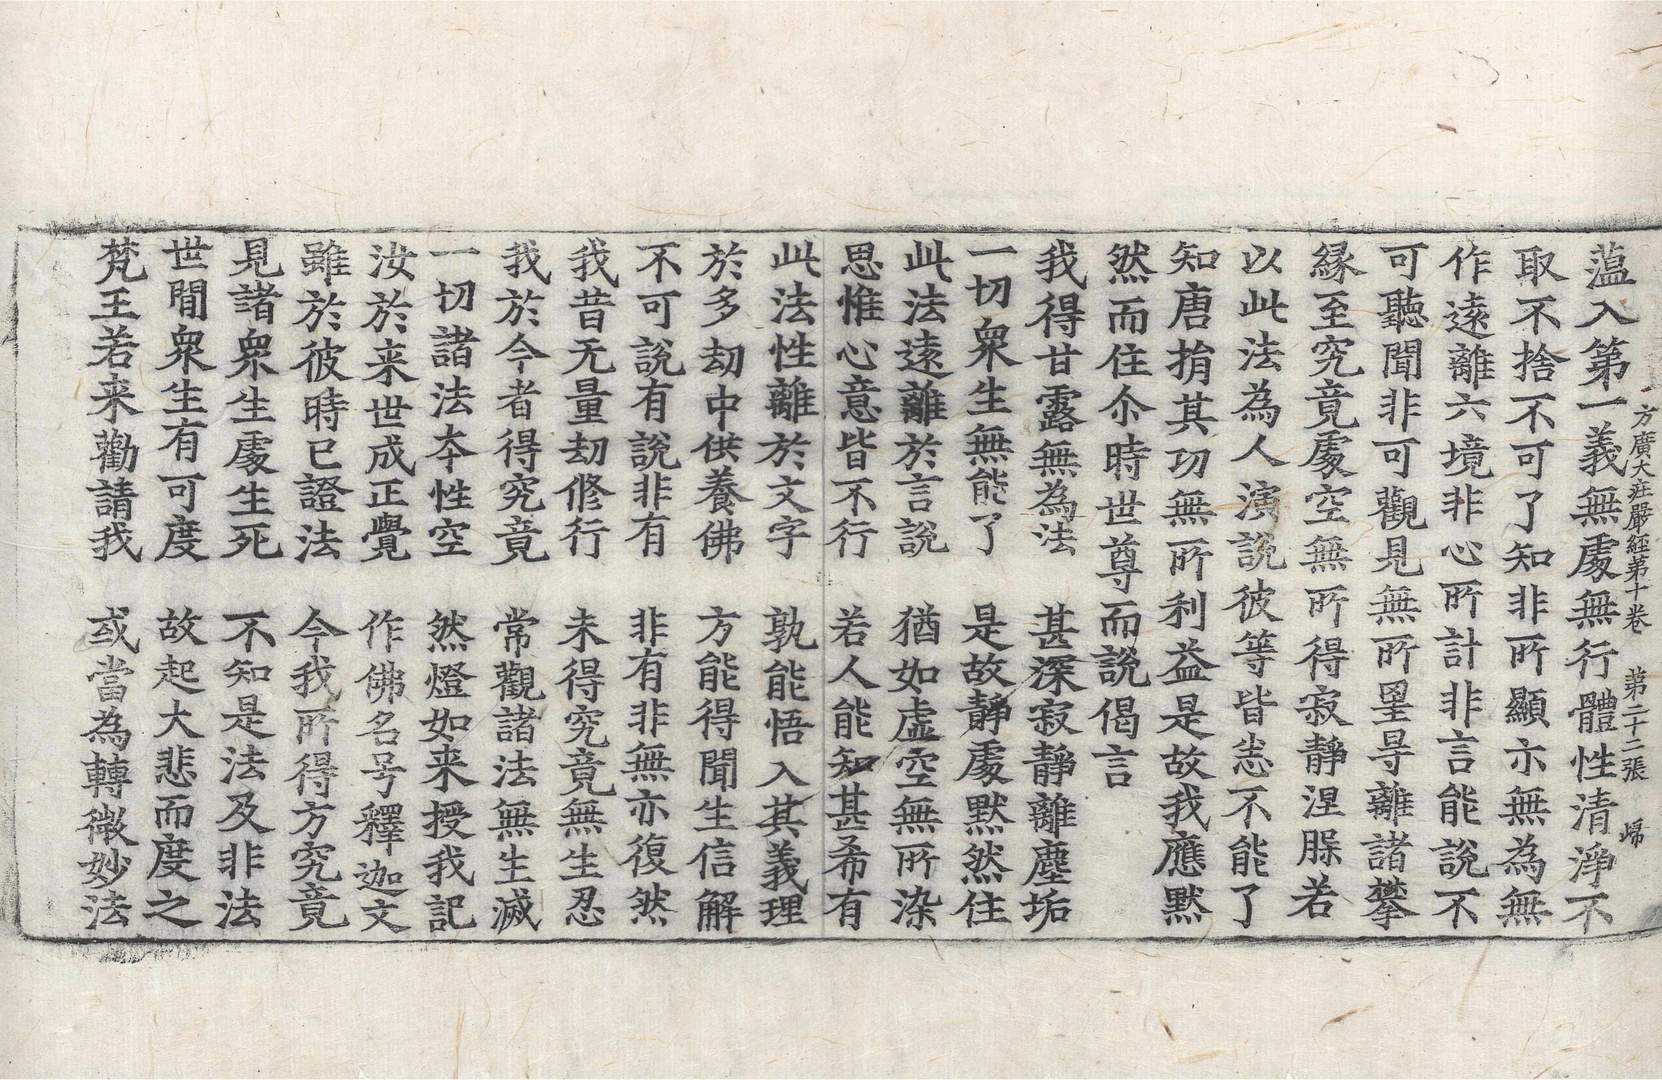 方廣大莊嚴經第十卷 第二十二張 歸
薀入第一義無處無行體性清淨不
取不捨不可了知非所顯示無為無
作遠離六境非心所計非言能說不
可聽聞非可觀見無所罣㝵離諸攀
緣至究竟處空無所得寂靜涅槃若
以此法為人演說彼等皆悉不能了
知唐捐其功無所利益是故我應默
然而住尒時世尊而說偈言
我得甘露無為法 甚深寂靜離塵垢
一切衆生無能了 是故靜處默然住
此法遠離於言說 猶如虛空無所染
思惟心意皆不行 若人能知甚希有
此法性離於文字 孰能悟入其義理
於多劫中供養佛 方能得聞生信解
不可說有說非有 非有非無亦復然
我昔无量劫修行 未得究竟無生忍
我於今者得究竟 常觀諸法無生滅
一切諸法本性空 然燈如来授我記
汝於来世成正覺 作佛名号釋迦文
雖於彼時已證法 今我所得方究竟
見諸衆生處生死 不知是法及非法
世間衆生有可度 故起大悲而度之
梵王若来勸請我 或當為轉微妙法